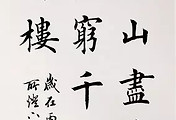 山盡
窮千
樓
歲在